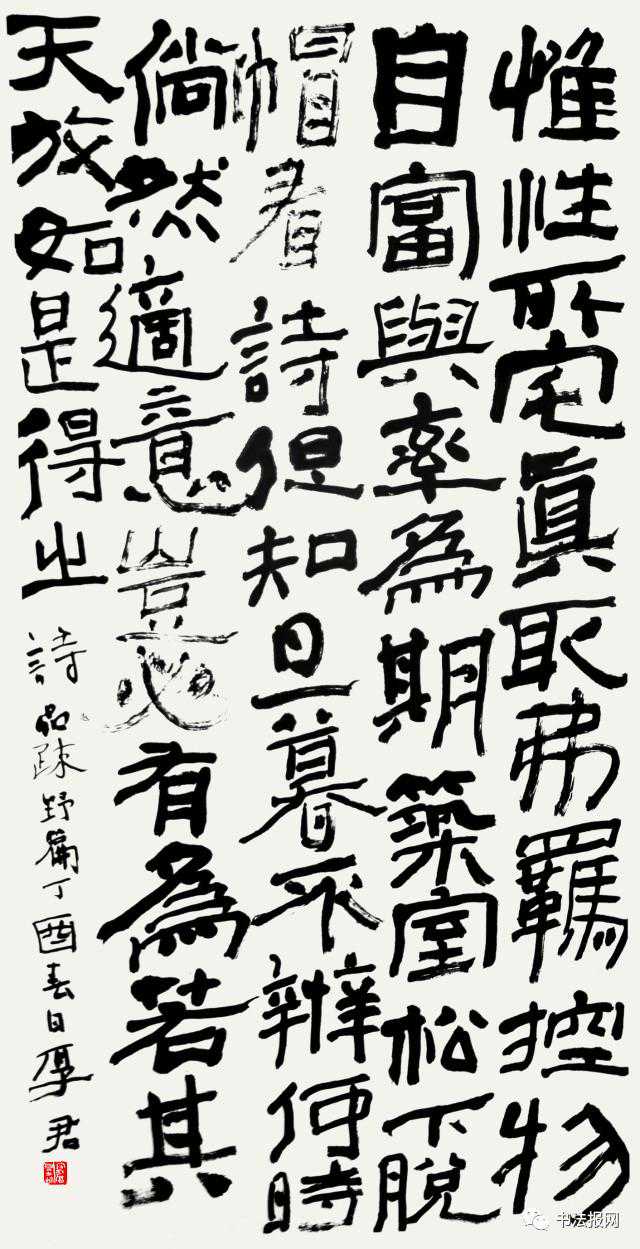 惟性所宅眞取弗羈控物
自富與率為期築室松下脫
帽看詩但知旦暮不辨何時
倘然適意豈必有為若其
天放如是得之
詩品疎野篇丁酉春日厚君
书法报网